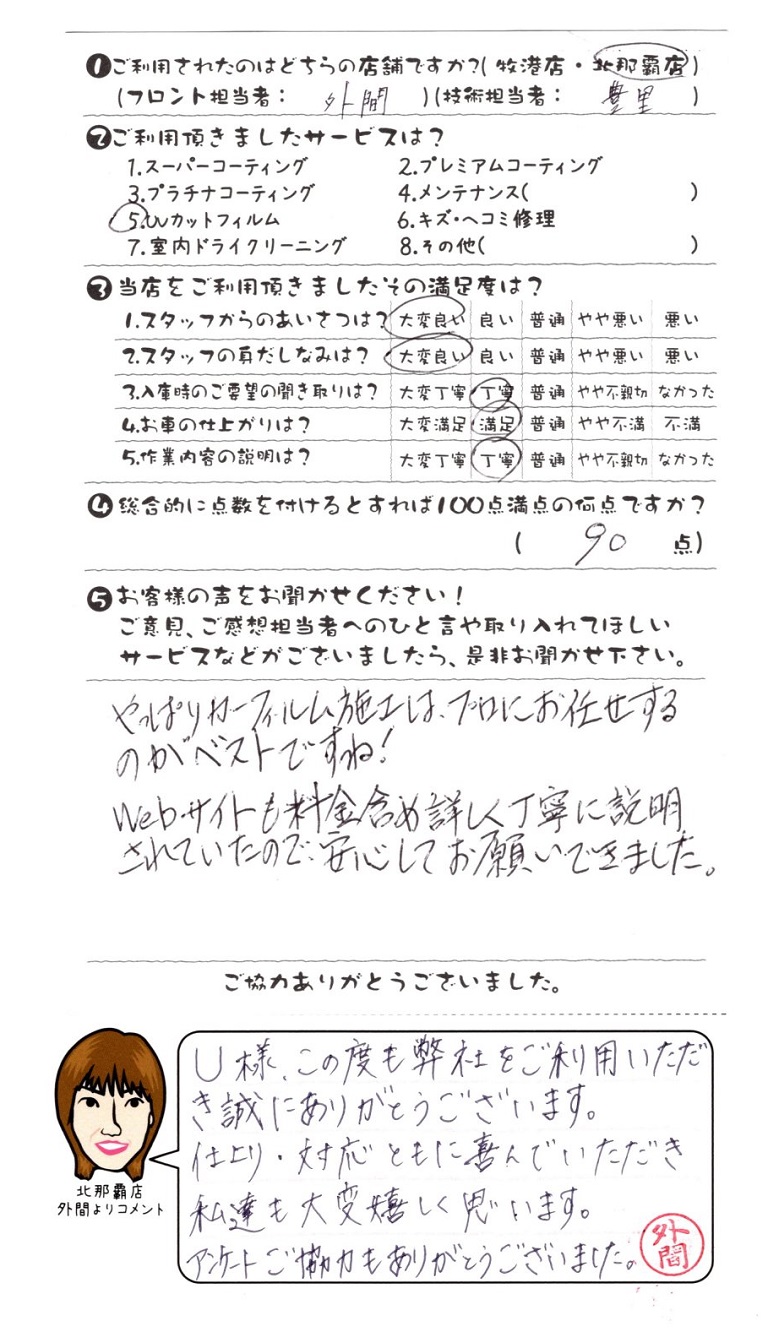 ❶ご利用されたのはどちらの店舗ですか?(牧港店・北那覇店)
(フロント担当者: 外間 )(技術担当者: 豊里 )
❷ご利用頂きましたサービスは?
1.スーパーコーティング 2.プレミアムコーティング
3.プラチナコーティング 4.メンテナンス( )
5.UVカットフィルム 6.キズ・ヘコミ修理
7.室内ドライクリーニング 8.その他( )
❸当店をご利用頂きましたその満足度は?
1.スタッフからのあいさつは? 大変良い 良い 普通 やや悪い 悪い
2.スタッフの身だしなみは? 大変良い 良い 普通 やや悪い 悪い
3.入庫時のご要望の聞き取りは? 大変丁寧 丁寧 普通 やや不親切 なかった
4.お車の仕上がりは? 大変満足 満足 普通 やや不満 不満
5.作業内容の説明は? 大変丁寧 丁寧 普通 やや不親切 なかった
❹総合的に点数を付けるとすれば100点満点の何点ですか?
( 90 点)
❺お客様の声をお聞かせください!
ご意見、ご感想担当者へのひと言や取り入れてほしい
サービスなどがございましたら、是非お聞かせ下さい。
やっぱりカーフィルム施工は、プロにお任せする
のがベストですね!
Web・サイトも料金含め詳しく丁寧に説明
されていたので、安心してお願いできました。
ご協力ありがとうございました。
U様、この度も弊社をご利用いただ
き誠にありがとうございます。
仕上り・対応ともに喜んでいただき
私達も大変嬉しく思います。
アンケートご協力もありがとうございました。
外間
北那覇店
外間よりコメント